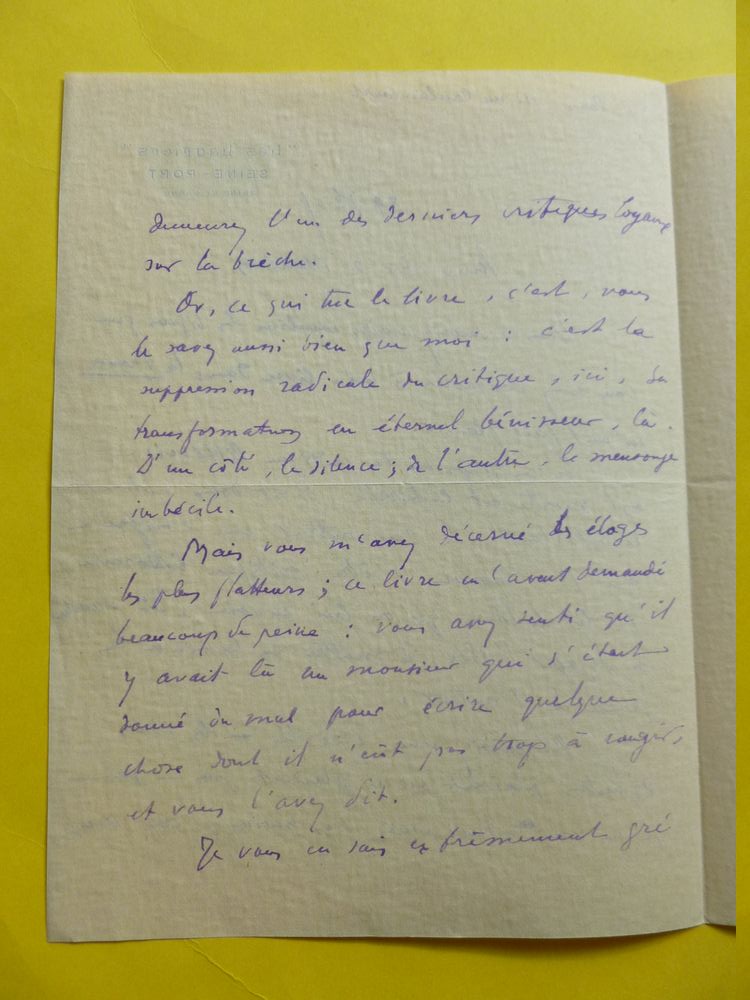 demeurez l'un des derniers critiques loyaux
sur la brèche.
Or, ce qui tue le livre, c'est, vous
le savez aussi bien que moi : c'est la
suppression radicale du critique, ici, sa
transformation en éternel bénisseur, là.
D'un côté, le silence ; de l'autre, le mensonge
imbécile.
Mais vous m'avez décerné les éloges
les plus flatteurs ; ce livre m'avait demandé
beaucoup de peine : vous avez senti qu'il
y avait là un monsieur qui s'était
donné du mal pour écrire quelque
chose dont il n'eût pas trop à rougir,
et vous l'avez dit.
Je vous en sais extrêmement gré
SEINE-PORT